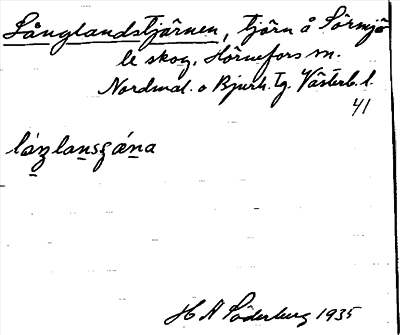 Långlandstjärnen, tjärn å Sörmjö
le skog, Hörnefors sn.
Nordmal. o Bjurh. Tg. Västerb. l.
41
H A Söderberg 1935